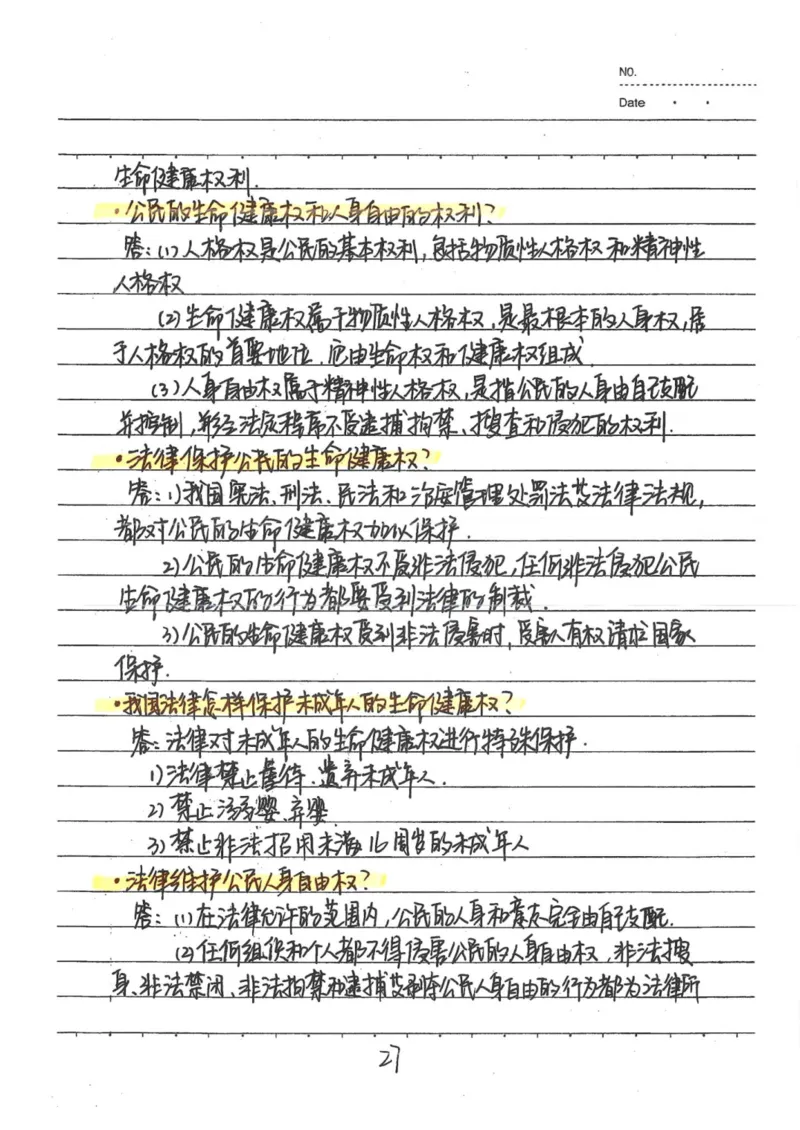 NO.
Date
生命健康权利.
·公民的生命健康权和人身自由的权利?
答:(1)人格权是公民的基本权利,包括物质性人格权和精神性
人格权
(2)生命健康权属于物质性人格权,是最根本的人身权,居
于人格权的首要地位.它由生命权和健康权组成.
(3)人身自由权属于精神性人格权,是指公民的人身由自己支配
并控制,非经法定程序不受逮捕拘禁、搜查和侵犯的权利.
·法律保护公民的生命健康权?
答:1)我国宪法、刑法、民法和治安管理处罚法及法律法规,
都对公民的生命健康权加以保护.
2)公民的生命健康权不受非法侵犯,任何非法侵犯公民
生命健康权的行为都要受到法律的制裁.
3)公民的生命健康权受到非法侵害时,受害人有权请求国家
保护.
·我国法律怎样保护未成年人的生命健康权?
答:法律对未成年人的生命健康权进行特殊保护.
1)法律禁止虐待、遗弃未成年人.
2)禁止溺婴、弃婴
3)禁止非法招用未满16周岁的未成年人
·法律维护公民人身自由权?
答:(1)在法律允许的范围内,公民的人身和意志完全由自己支配.
(2)任何组织和个人都不得侵害公民的人身自由权,非法搜
身、非法禁闭、非法拘禁和逮捕及剥夺公民人身自由的行为都为法律所
27